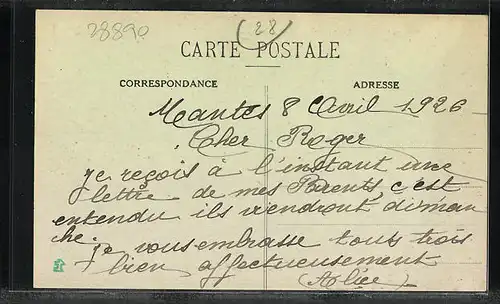 28890
28
CARTE POSTALE
CORRESPONDANCE
ADRESSE
Mantes 8 Avril 1926
Cher Roger
je reçois à l'instant une
lettre de mes Parents, c'est
entendu ils viendront diman
che.
je vous embrasse tous trois
bien affectueusement
(Alice)